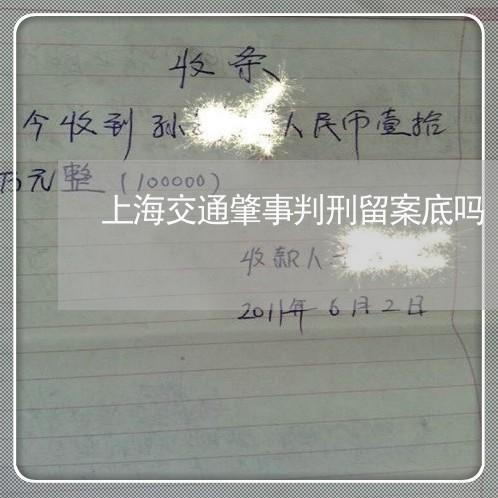 收条
今收到孙人民币壹拾
万元整（100000）
上海交通肇事判刑留案底吗
收款人
2011年6月2日